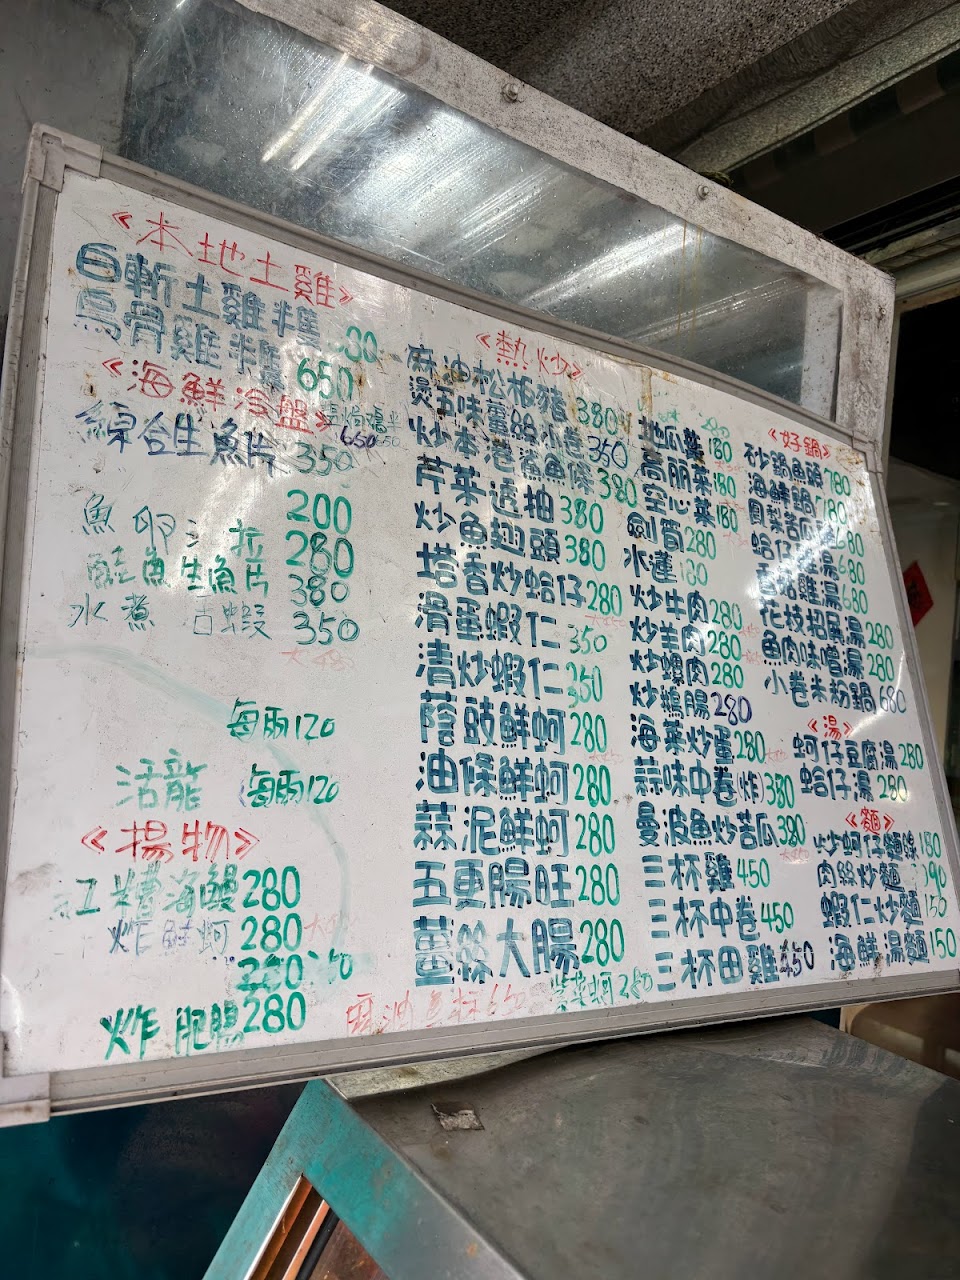 《本地土雞》
白斬土雞半隻
烏骨雞半隻 650
《海鮮冷盤》
綜合生魚片 350 650
魚卵沙拉 200
280
鮭魚生魚片 380
水煮活蝦 350
每兩120
活龍 每兩120
《揚物》
紅糟海鰻280
炸鮮蚵280
炸肥腸280
《熱炒》
麻油松板豬380
燙五味薑絲小卷350
炒本港鯊魚條380
芹菜透抽380
炒魚翅頭380
塔香炒蛤仔280
滑蛋蝦仁350
清炒蝦仁350
蔭豉鮮蚵280
油條鮮蚵280
蒜泥鮮蚵280
五更腸旺280
薑絲大腸280
麻油
280
地瓜葉180
高麗菜180
空心菜180
劍筍280
水蓮180
炒牛肉280
炒羊肉280
炒螺肉280
炒鵝腸280
海菜炒蛋280
蒜味中卷(炸)380
曼波魚炒苦瓜380
三杯雞450
三杯中卷450
三杯田雞450
《好鍋》
砂鍋魚頭780
海鮮鍋780
鳳梨苦瓜雞680
蛤仔雞湯680
香菇雞湯680
花枝招展湯280
魚肉味噌湯280
小卷米粉鍋680
《湯》
蚵仔豆腐湯280
蛤仔湯280
《麵》
炒蚵仔麵線180
肉絲炒麵
蝦仁炒麵150
海鮮湯麵150